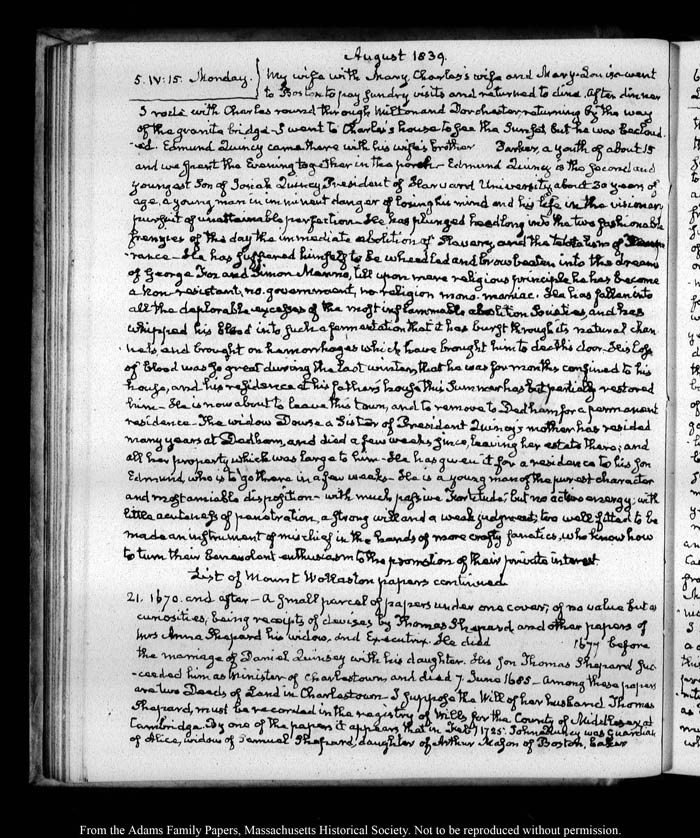 August 1839.
5. IV: 15. Monday. } My wife with Mary, Charles's wife and Mary-Louisa went
to Boston to pay sundry visits and returned to dine. After dinner
I rode with Charles round through Milton and Dorchester returning by the way
of the granite bridge. I went to Charles's house to see the Sunset but he was becloud
-ed. Edmund Quincy came there with his wife's brother Parker, a youth of about 15
and we spent the Evening together in the porch. Edmund Quincy is the second and
youngest Son of Josiah Quincy President of Harvard University about 30 years of
age, a young man in imminent danger of losing his mind and his life in the visionary
pursuit of unattainable perfection. He has plunged headlong into the two fashionable
frenzies of the day the immediate abolition of Slavery, and the totalism of Tempe
-rance. He has suffered himself to be wheedled and browbeaten into the dreams
of George Fox and Simon Menno, till upon mere religious principle he has become
a Non-resistant, no-government, no religion mono-maniac. He has fallen into
all the deplorable excesses of the most inflammable abolition Societies, and has
whipped his blood into such a fermentation that it has burst through its natural chan
nels and brought on hemorrhages which have brought him to death's door. His loss
of blood was so great during the last winter, that he was for months confined to his
house, and his residence at his father's house this Summer has but partially restored
him. He is now about to leave this town, and to remove to Dedham for a permanent
residence. The widow Dowse a Sister of President Quincy's mother has resided
many years at Dedham, and died a few weeks since, leaving her estate there; and
all her property which was large to him. He has given it for a residence to his Son
Edmund, who is to go there in a few weeks. He is a young man of the purest character
and most amiable disposition - with much passive fortitude, but no active energy; with
little acuteness of penetration, a strong will and a weak judgment; too well fitted to be
made an instrument of mischief in the hands of more crafty fanatics, who know how
to turn their benevolent enthusiasm to the promotion of their private interest.
List of Mount Wollaston papers continued
21. 1670. and after - A small parcel of papers under one cover; of no value but as
curiosities, being receipts of devises by Thomas Shepard and other papers of
Mrs Anna Shepard his widow, and Executrix. He died 1677 before
the marriage of Daniel Quinsey with his daughter. His Son Thomas Shepard suc
-ceeded him as Minister of Charlestown, and died 7. June 1685 - Among these papers
are two Deeds of Land in Charlestown - I suppose the Will of her husband Thomas
Shepard, must be recorded in the registry of Wills for the County of Middlesex at
Cambridge. By one of the papers it appears that in Feby 1725. John Quincy was Guardian
of Alice, widow of Samuel Shepard, daughter of Arthur Mason of Boston,
From the Adams Family Papers, Massachusetts Historical Society. Not to be reproduced without permission.